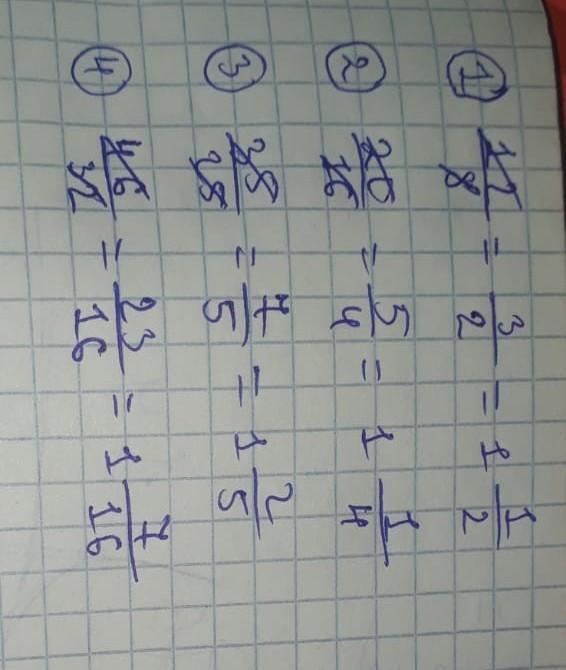 ① 12/8 = 3/2 = 1 1/2
② 20/16 = 5/4 = 1 1/4
③ 28/20 = 7/5 = 1 2/5
④ 46/32 = 23/16 = 1 7/16